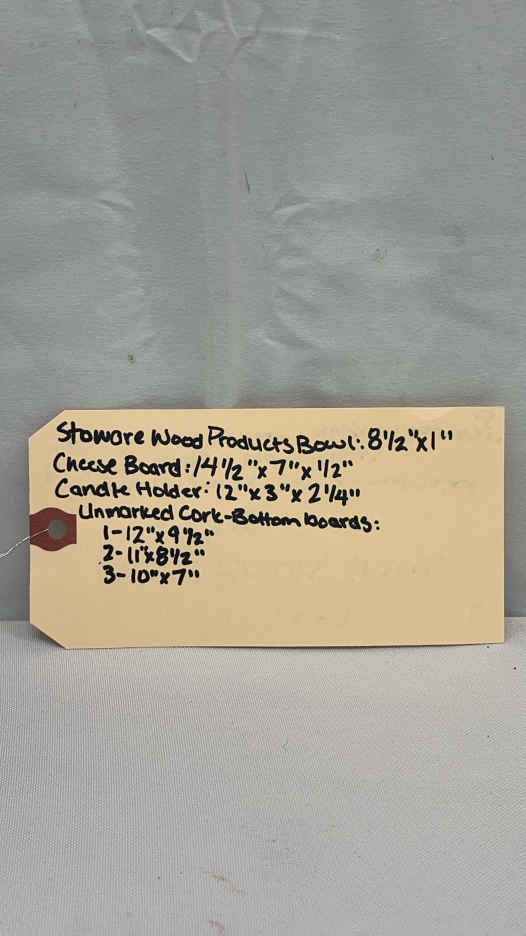 Stoware Wood Products Bowl: 8 1/2"x1"
Cheese Board: 14 1/2"x7"x1/2"
Candle Holder: 12"x3"x2 1/4"
Unmarked Cork-Bottom boards:
1-12"x9 1/2"
2-11"x8 1/2"
3-10"x7"